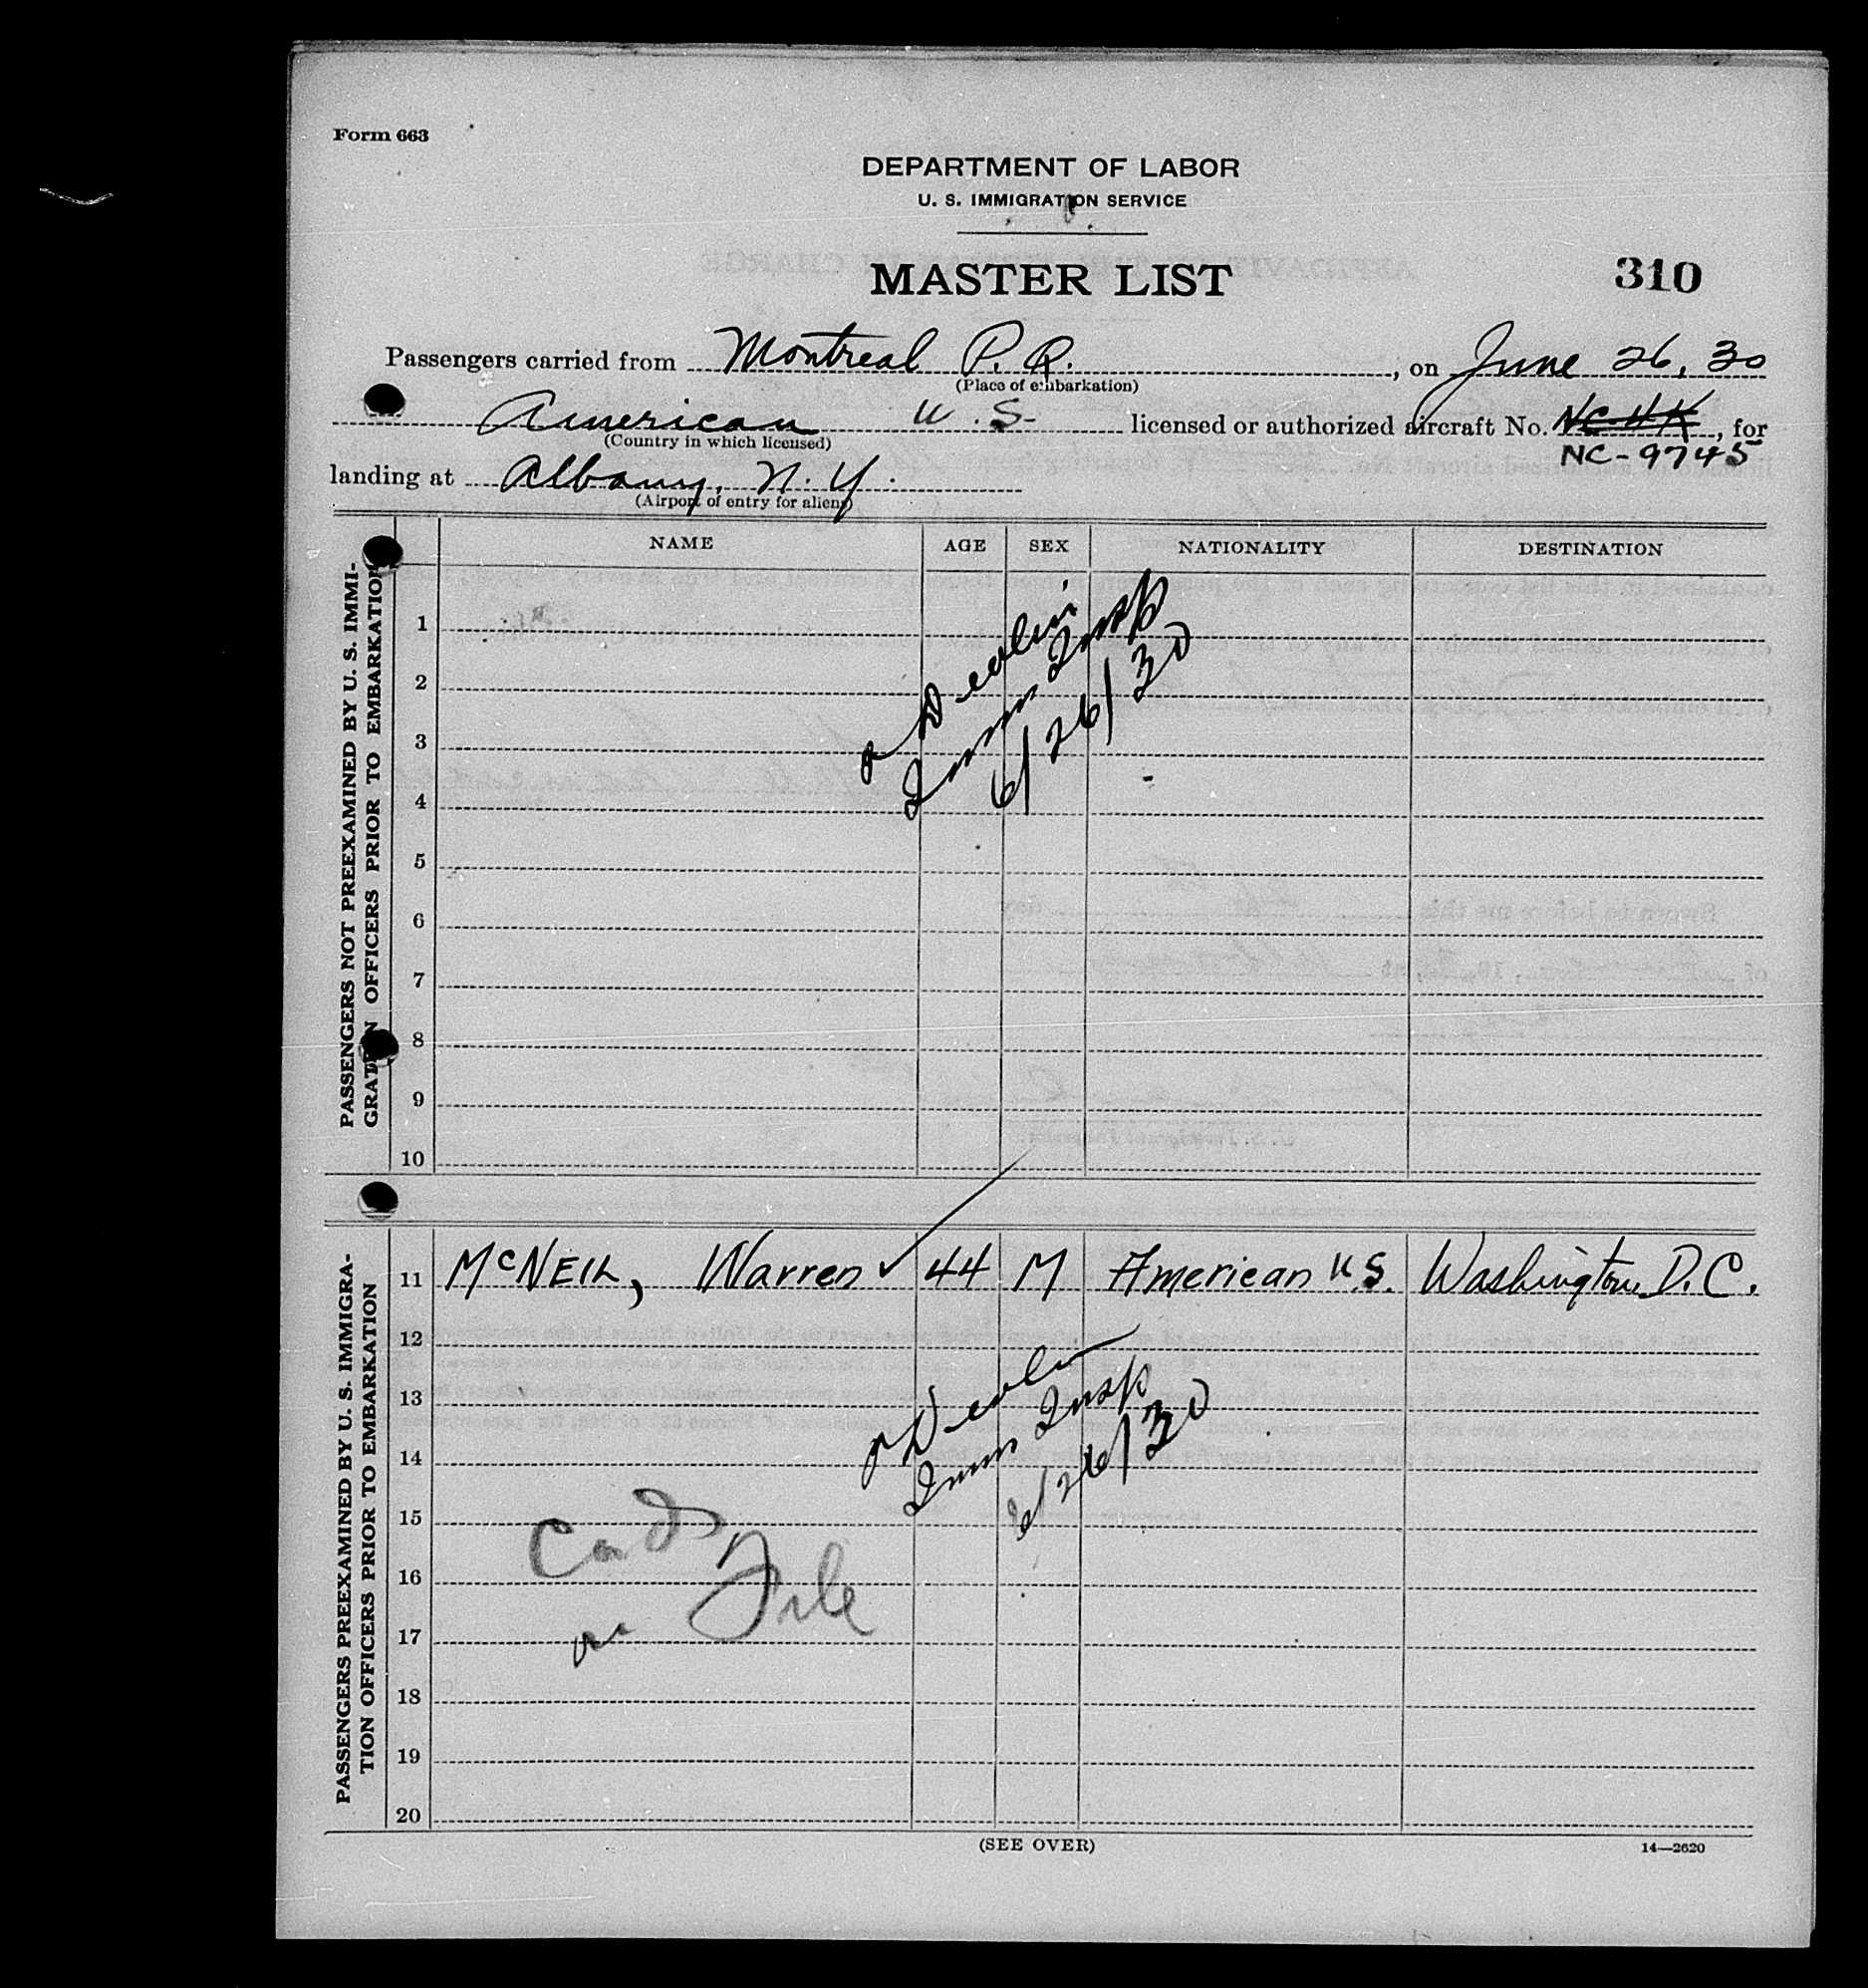 Form 663
DEPARTMENT OF LABOR
U. S. IMMIGRATION SERVICE
MASTER LIST
310
Passengers carried from Montreal P. Q. , on June 26, 30
(Place of embarkation)
American U.S. licensed or authorized aircraft No. , for
(Country in which licensed)
NC-9745
landing at Albany, N. Y.
(Airport of entry for aliens)
NAME AGE SEX NATIONALITY DESTINATION
PASSENGERS NOT PREEXAMINED BY U. S. IMMI-
GRATION OFFICERS PRIOR TO EMBARKATION
1
2
3
4
5
6
7
8
9
10
Devlin
Imm Insp
6/26/30
PASSENGERS PREEXAMINED BY U. S. IMMIGRA-
TION OFFICERS PRIOR TO EMBARKATION
11 McNEIL, Warren ✓ 44 M American U.S. Washington, D.C.
12
13
14
15
16
17
18
19
20
Devlin
Imm Insp
6/26/30
Cards
on File
(SEE OVER)
14—2620